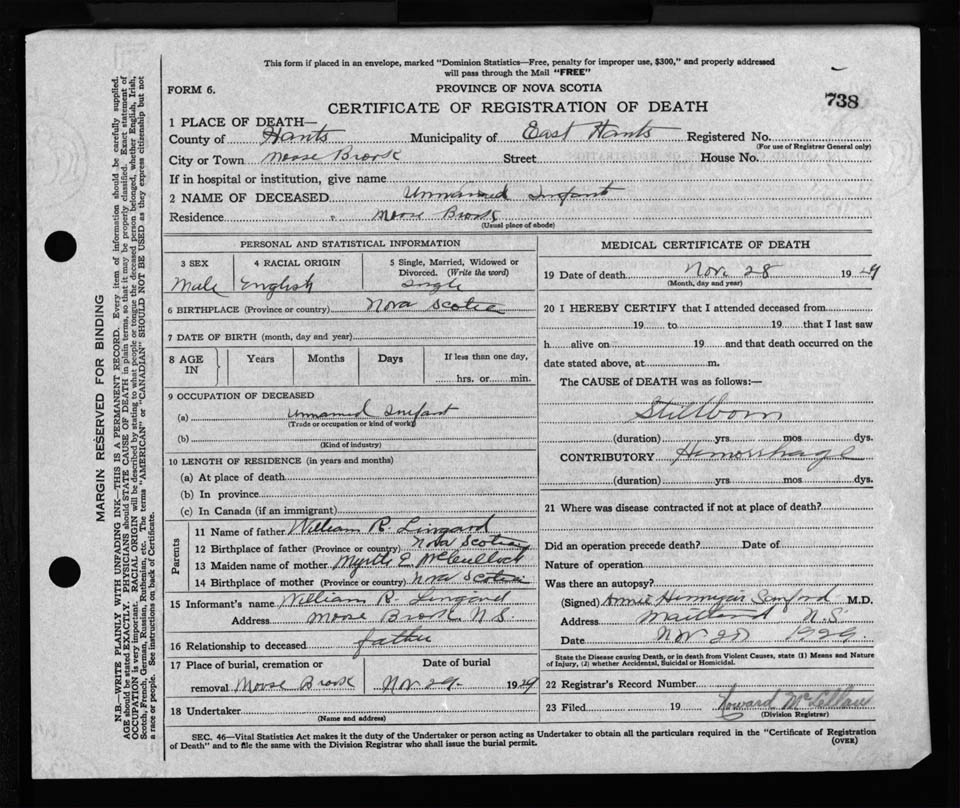 This form if placed in an envelope, marked "Dominion Statistics—Free, penalty for improper use, $300," and properly addressed
will pass through the Mail "FREE"
FORM 6.
PROVINCE OF NOVA SCOTIA
738
CERTIFICATE OF REGISTRATION OF DEATH
1 PLACE OF DEATH—
County of Hants Municipality of East Hants Registered No.
(For use of Registrar General only)
City or Town Moose Brook Street House No.
If in hospital or institution, give name
2 NAME OF DECEASED Unnamed Infant
Residence " Moose Brook
(Usual place of abode)
MARGIN RESERVED FOR BINDING
N.B.—WRITE PLAINLY WITH UNFADING INK—THIS IS A PERMANENT RECORD. Every item of information should be carefully supplied.
AGE should be stated EXACTLY. PHYSICIANS should STATE CAUSE OF DEATH in plain terms, so that it may be properly classified. Exact statement of
OCCUPATION is very important. RACIAL ORIGIN will be described by stating to what people or tongue the deceased person belonged, whether English, Irish,
Scotch, French, German, Russian, Ruthenian, etc. The terms "AMERICAN" or "CANADIAN" SHOULD NOT BE USED as they express citizenship but not
a race or people. See instructions on back of Certificate.
PERSONAL AND STATISTICAL INFORMATION
3 SEX
Male
4 RACIAL ORIGIN
English
5 Single, Married, Widowed or
Divorced. (Write the word)
Single
6 BIRTHPLACE (Province or country) Nova Scotia
7 DATE OF BIRTH (month, day and year)
8 AGE IN Years Months Days If less than one day,
hrs. or min.
9 OCCUPATION OF DECEASED
(a) Unnamed Infant
(Trade or occupation or kind of work)
(b)
(Kind of industry)
10 LENGTH OF RESIDENCE (in years and months)
(a) At place of death
(b) In province
(c) In Canada (if an immigrant)
Parents
11 Name of father William R. Lingard
12 Birthplace of father (Province or country) Nova Scotia
13 Maiden name of mother Myrtle E McCulloch
14 Birthplace of mother (Province or country) Nova Scotia
15 Informant's name William R. Lingard
Address Moose Brook N.S.
16 Relationship to deceased father
17 Place of burial, cremation or Date of burial
removal Moose Brook Nov 29 1929
18 Undertaker
(Name and address)
MEDICAL CERTIFICATE OF DEATH
19 Date of death Nov. 28 1929
(Month, day and year)
20 I HEREBY CERTIFY that I attended deceased from
19 to 19 that I last saw
h alive on 19 and that death occurred on the
date stated above, at m.
The CAUSE of DEATH was as follows:—
Stillborn
(duration) yrs mos dys.
CONTRIBUTORY Hemorrhage
(duration) yrs mos dys.
21 Where was disease contracted if not at place of death?
Did an operation precede death? Date of
Nature of operation
Was there an autopsy?
(Signed) Annie Hennigar Sanford M.D.
Address Maitland N.S.
Date Nov 28 1929
State the Disease causing Death, or in death from Violent Causes, state (1) Means and Nature
of Injury, (2) whether Accidental, Suicidal or Homicidal.
22 Registrar's Record Number
23 Filed 19 Howard McLellan
(Division Registrar)
SEC. 46—Vital Statistics Act makes it the duty of the Undertaker or person acting as Undertaker to obtain all the particulars required in the "Certificate of Registration
of Death" and to file the same with the Division Registrar who shall issue the burial permit.
(OVER)